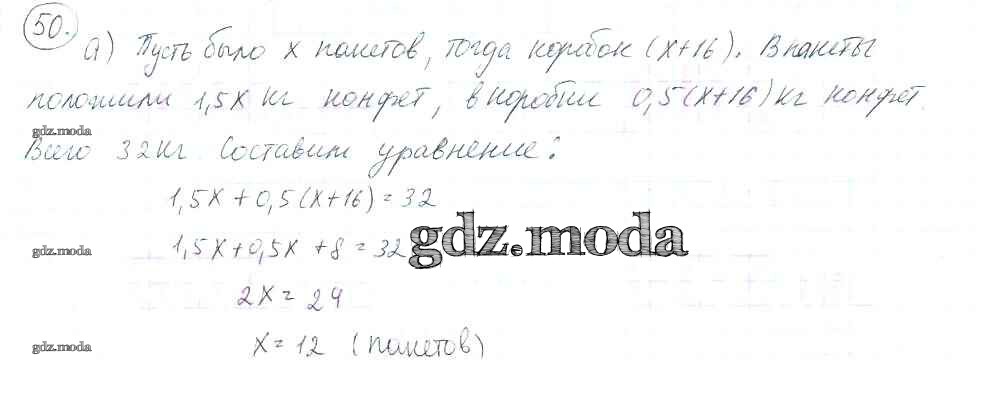 50.
а) Пусть было х пакетов, тогда коробок (х+16). В пакеты
положили 1,5х кг конфет, в коробки 0,5(х+16)кг конфет.
gdz.moda
Всего 32кг. Составим уравнение:
1,5х+0,5(х+16)=32
gdz.moda
1,5х+0,5х+8=32
gdz.moda
2х=24
х=12 (пакетов)
gdz.moda